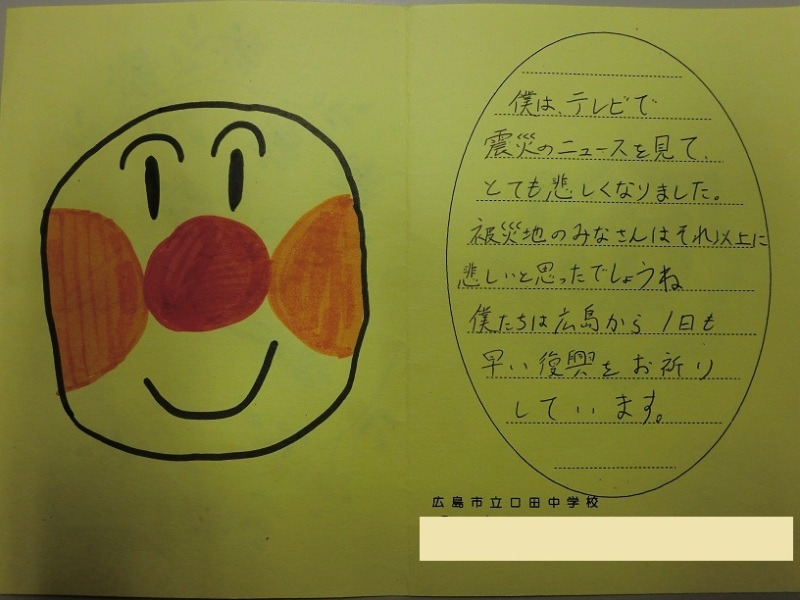 僕は、テレビで
震災のニュースを見て、
とても悲しくなりました。
被災地のみなさんはそれ以上に
悲しいと思ったでしょうね
僕たちは広島から1日も
早い復興をお祈り
しています。
広島市立口田中学校